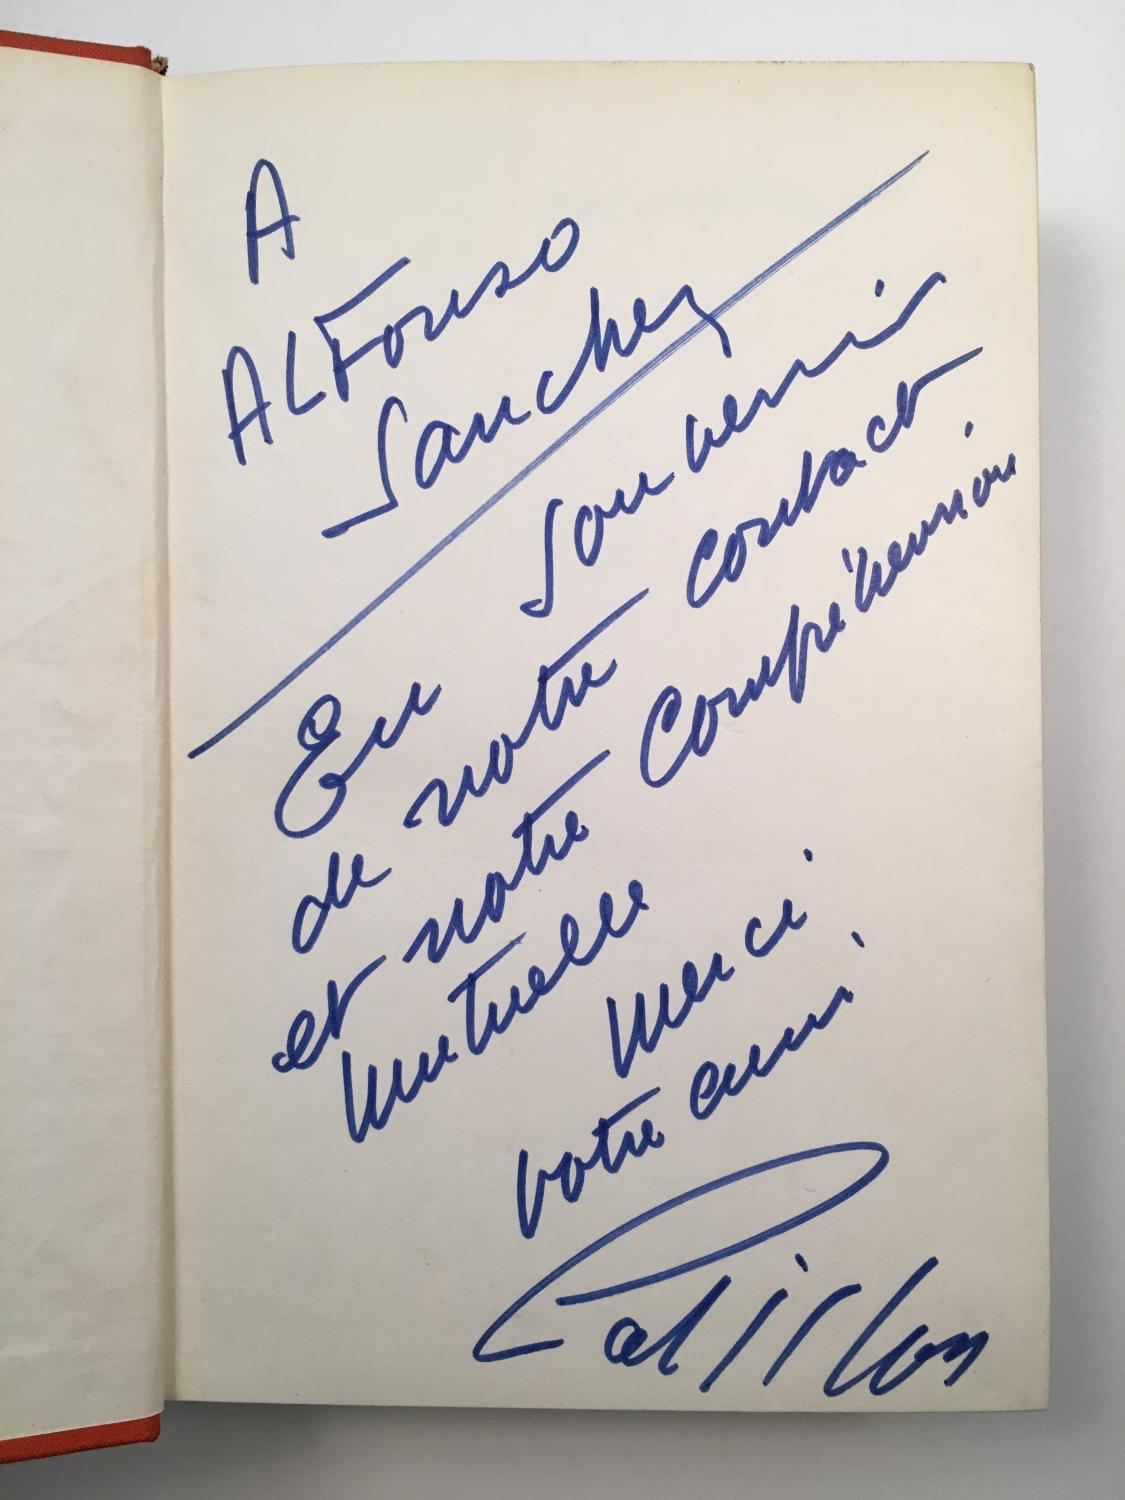 A
ALFonso
Sanchez
En Souvenir
de notre contact
et notre compréhension
mutuelle
Merci
votre ami